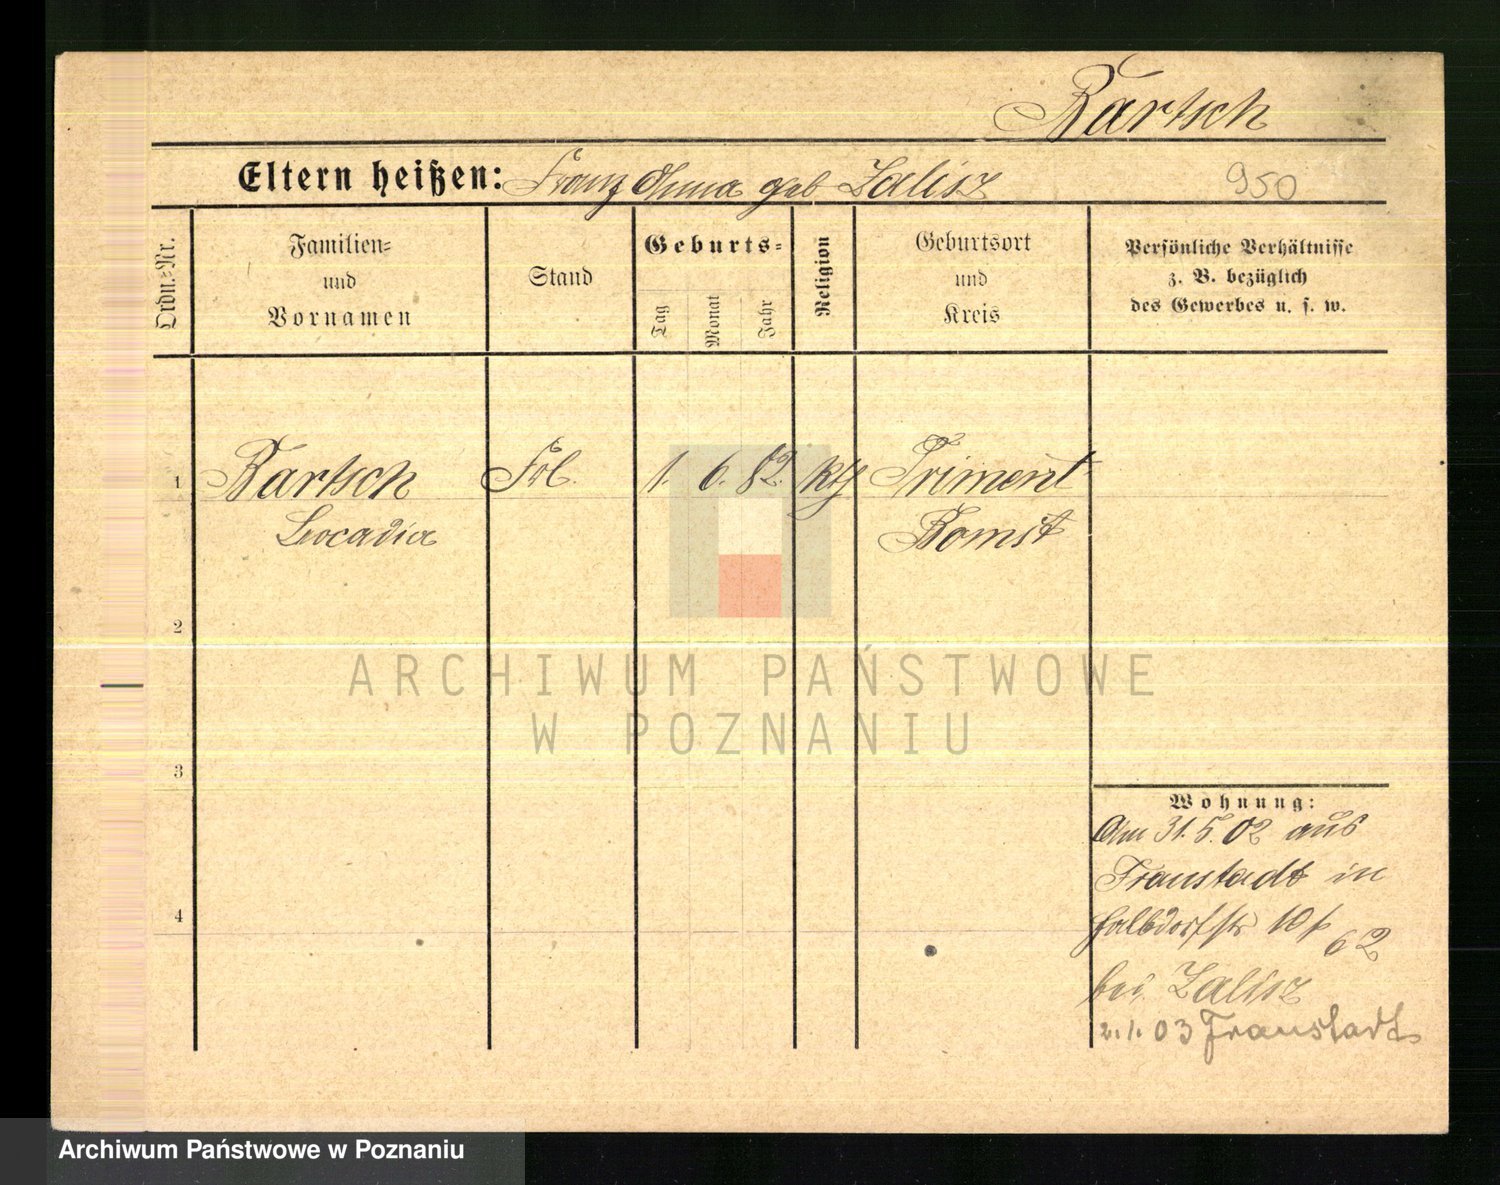 Bartsch
Eltern heißen: Franz Anna geb Zalisz
950
Ordn.=Nr.
Familien=
und
Vornamen
Stand
Geburts=
Tag
Monat
Jahr
Religion
Geburtsort
und
Kreis
Persönliche Verhältnisse
z. B. bezüglich
des Gewerbes u. s. w.
1
Bartsch
Leocadia
Frl.
1.
6.
82.
kth
Priment
Bomst
2
3
4
ARCHIWUM PAŃSTWOWE
W POZNANIU
Wohnung:
Am 31.5.02 aus
Fraustadt in
Halbdorfstr 10
62
bei Zalisz
2.1.03 Fraustadt
Archiwum Państwowe w Poznaniu